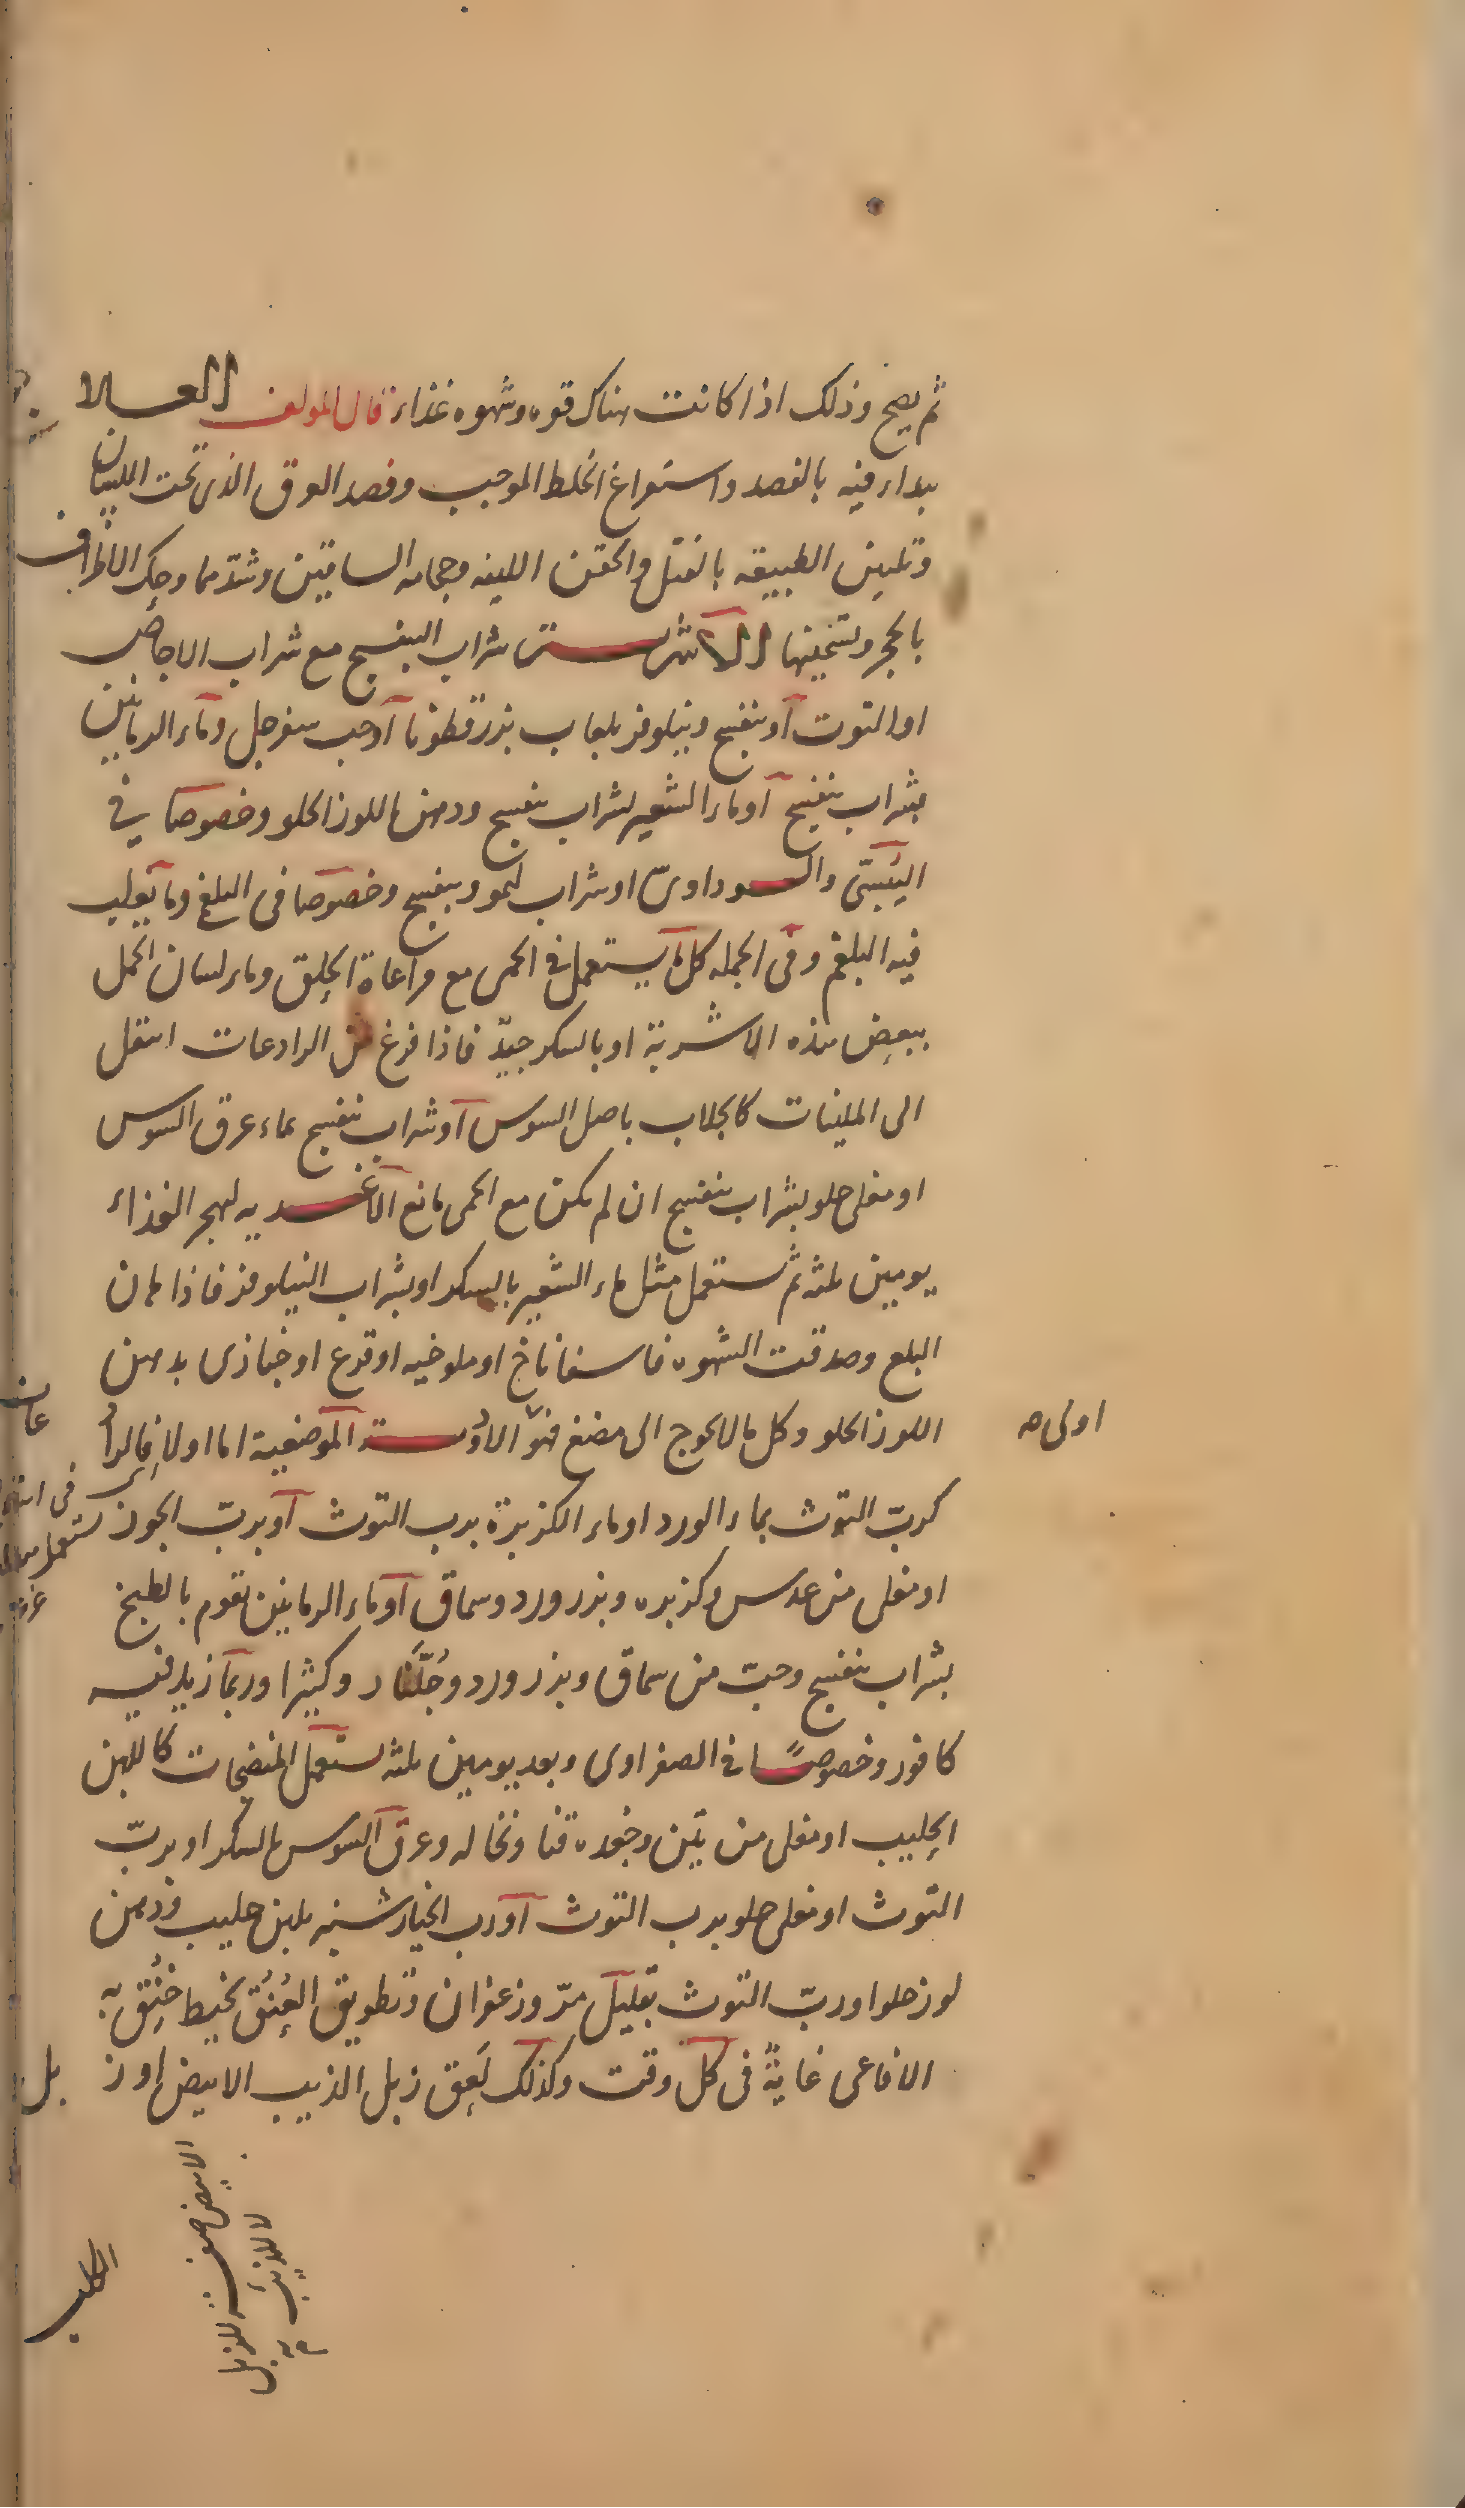 ثم يصح وذلك اذا كانت هناك قوه وشهوه غذاء قال المولف العـــلا
يبداء فيه بالفصد واستفراغ الخلط الموجب وفصد العرق الذى تحت اللسان
وتليين الطبيعه بالفتل والحقن اللينه وحجامه الساقين وشدهما وحك الاطراف
بالحجر وتسخينها الاشربـــة شراب البنفسج مع شراب الاجاص
او التوت او بنفسج ونيلوفر بلعاب بزر قطونا او حب سفرجل وماء الرمانين
بشراب بنفسج او ماء الشعير بشراب بنفسج ودهن اللوز الحلو وخصوصا في
اليبسىّ والسوداوىّ او شراب ليمو وبنفسج وخصوصا فى البلغم وما يغلب
فيه البلغم وفى الجمله كل ما يستعمل فى الحمى مع مراعاة الحلق وماء لسان الحمل
ببعض هذه الاشربة او بالسكر جيّد فاذا فرغ من الرادعات انتقل
الى الملينات كالجلاب باصل السوس او شراب بنفسج بماء عرق السوس
او مغلى حلو بشراب بنفسج ان لم يكن مع الحمى مانع الاغـــديه يهجر الغذاء
يومين ثلثه ثم يستعمل مثل ماء الشعير بالسكر او بشراب النيلوفر فاذا هان
البلع وصدقت الشهوه فاسفاناخ او ملوخيه او قرع او خبازى بدهن
اللوز الحلو وكل ما لا يحوج الى مضغ فهو الادويـــة الموضعية اما اولا فبالردا
اولى صه
كربّ التوث بماء الورد او ماء الكزبرة برب التوث او بربّ الجوز
او مغلى من عدس وكزبره وبزر ورد وسماق او ماء الرمانين يقوم بالطبخ
بشراب بنفسج وحبّ من سماق وبزر ورد وجُلّنار وكثيرا وربما زيد فيه
كافور وخصوصًا فى الصفراوى وبعد يومين ثلثه يستعمل المنضجات كاللبن
الحليب او مغلى من تين وجعده قنا ونخاله وعرق السوس بالسكر او بربّ
التوث او مغلى حلو برب التوث او رب الخيارشنبر بلبن حليب ودهن
لوز حلو او ربّ التوث بقليل مرّ وزعفران وتطويق العُنُق بخيط خُنِق به
الافاعى غايةً فى كل وقت وكذلك لَعِق زبل الذيب الابيض او ز بل
الكلب
الابيض صفة للزبل
لا للذئب